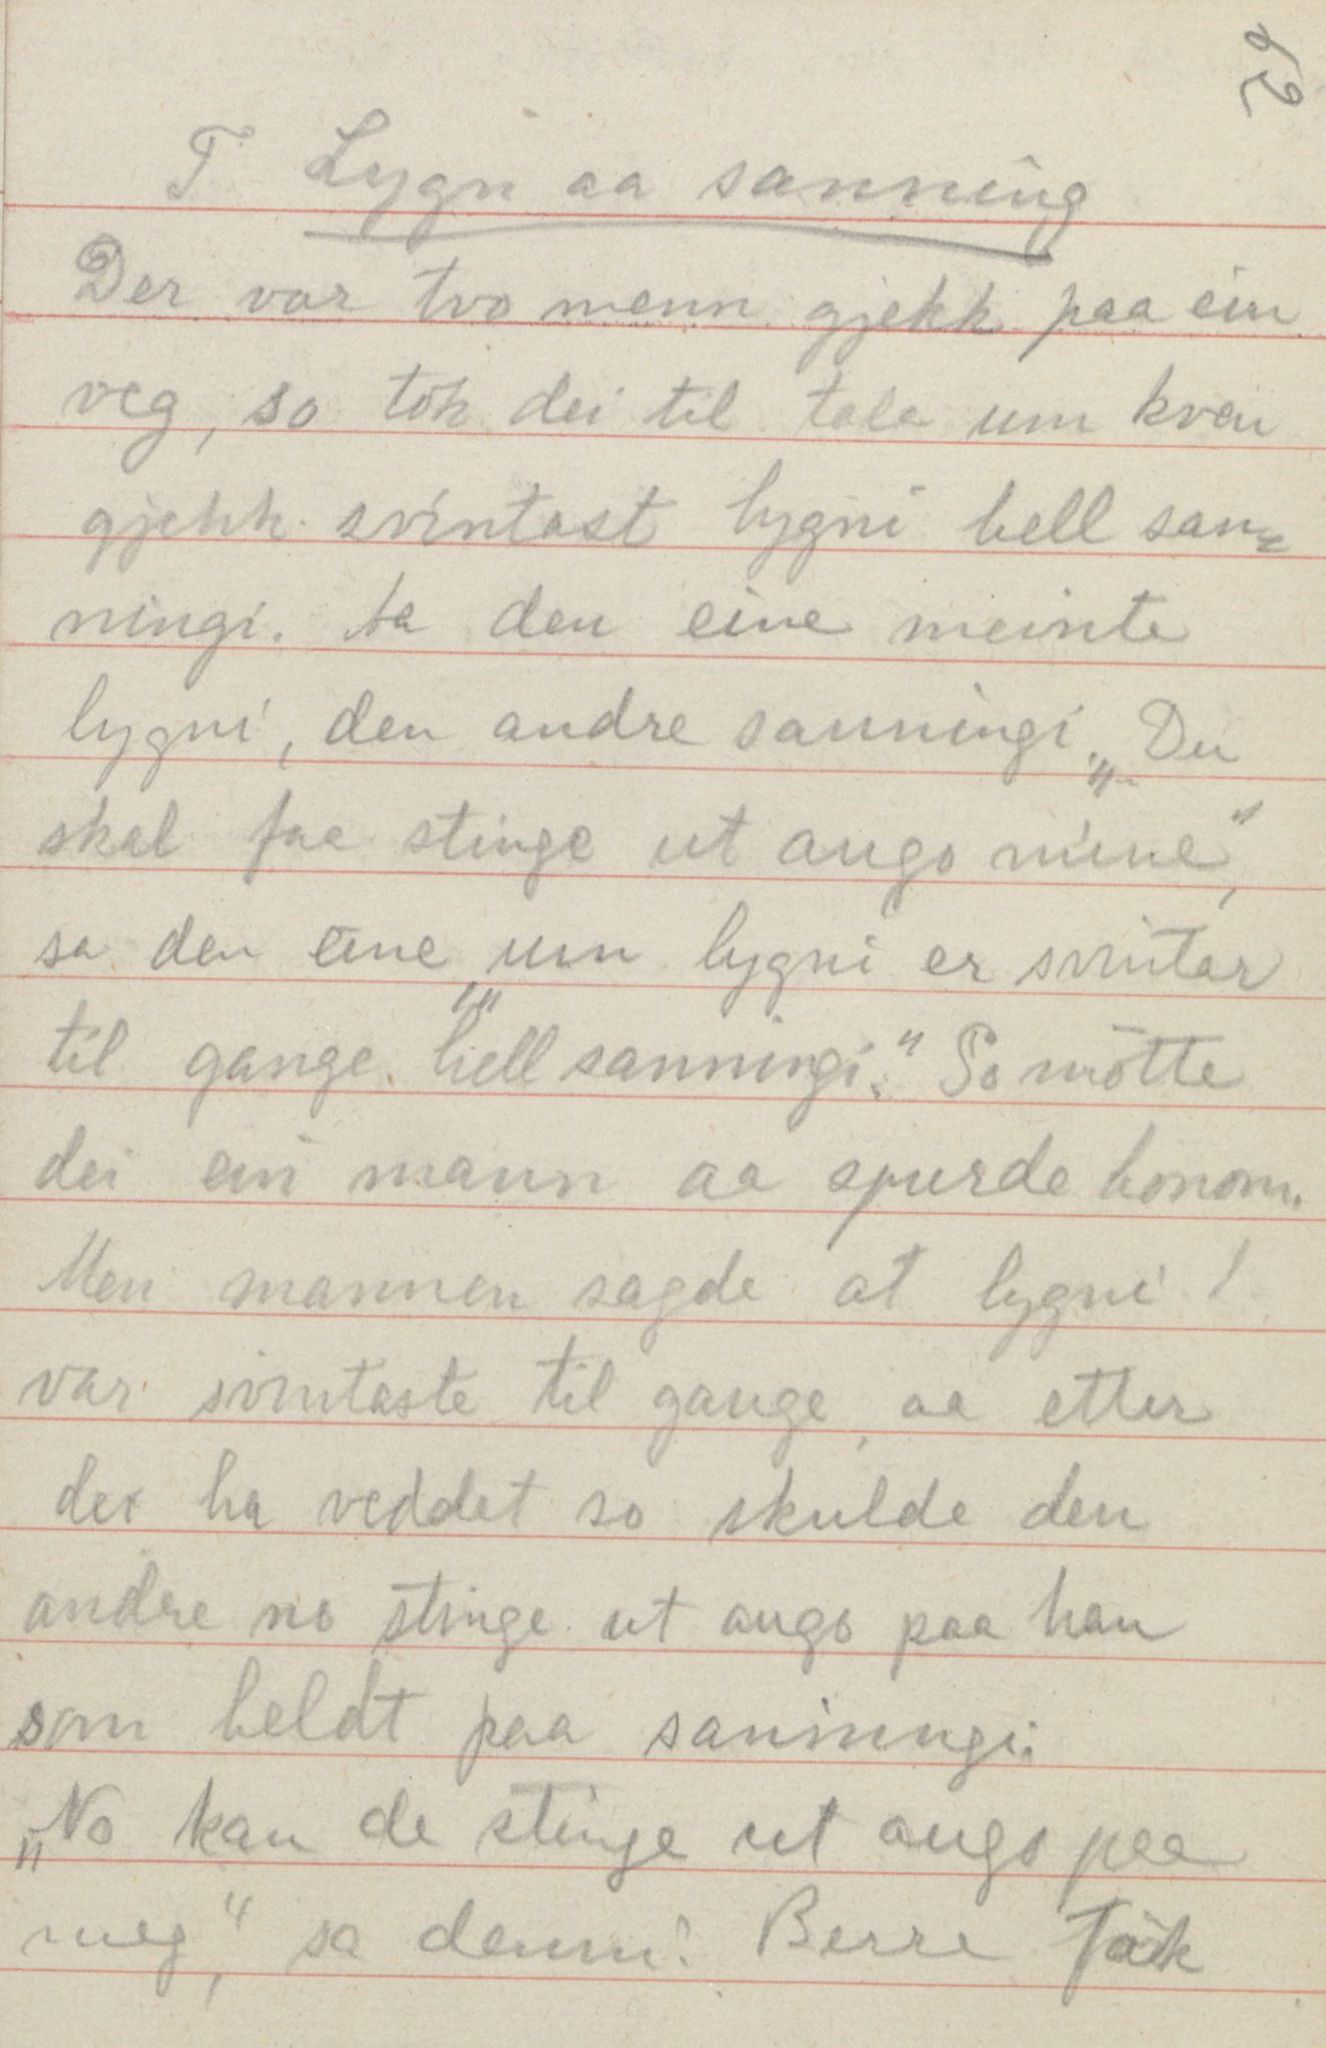 62
T Lygn aa sanning
Der var tvo menn gjekk paa ein
veg, so tok dei til tala um kven
gjekk svintast lygni hell san=
ningi. Aa den eine meinte
lygni, den andre sanningi. „Du
skal faa stinge ut augo mine",
sa den eine „um lygni er svintar
til gange hell sanningi." So møtte
dei ein mann aa spurde honom.
Men mannen sagde at lygni!
var svintaste til gange, aa etter
dei ha veddet so skulde den
andre no stinge ut augo paa han
som heldt paa sanningi.
„No kan de stinge ut augo paa
meg", sa denni. Berre